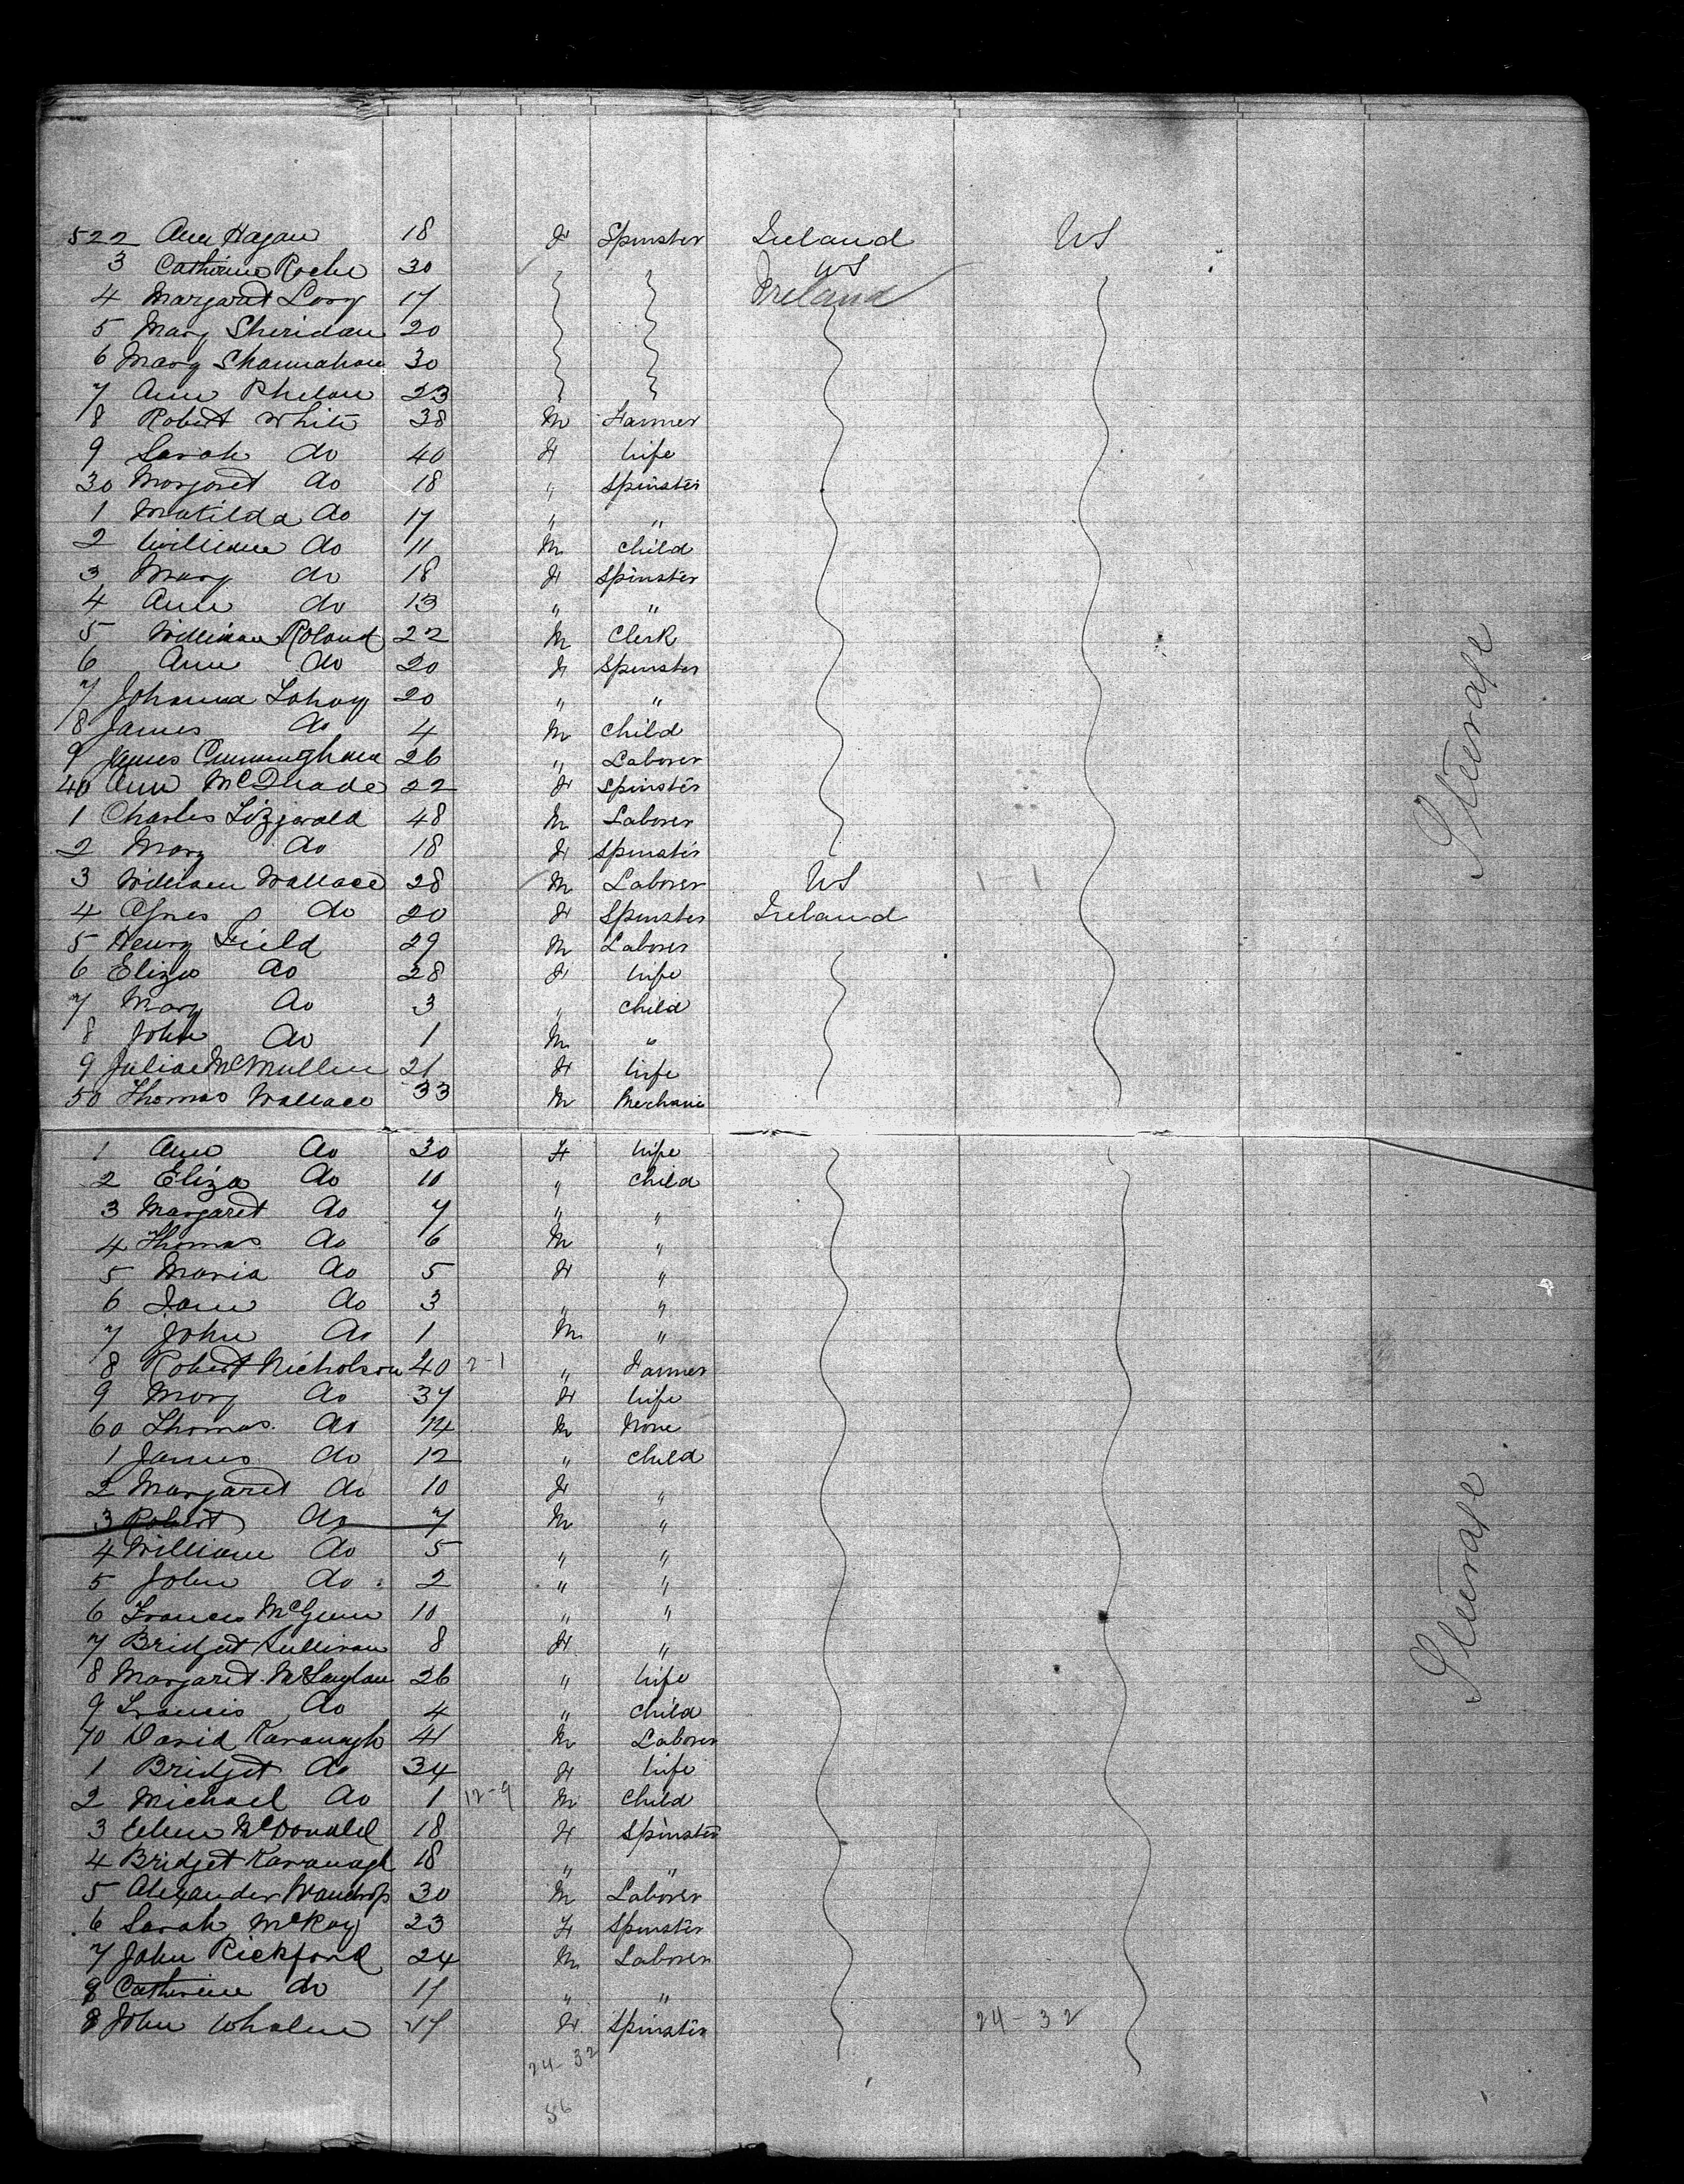 522 Ann Hagan 18 F Spinster Ireland US
3 Catherine Roche 30 US
4 Margaret Long 17 Ireland
5 Mary Sheridan 20
6 Mary Shannahan 30
7 Ann Phelan 23
8 Robert White 38 M Farmer
9 Sarah do 40 F Wife
30 Margaret do 18 " Spinster
1 Matilda do 17 " "
2 William do 11 M Child
3 Mary do 18 F Spinster
4 Ann do 13 " "
5 William Roland 22 M Clerk
6 Ann do 20 F Spinster
7 Johanna Lahay 20 " "
8 James do 4 M Child
9 James Cunningham 26 " Laborer
40 Ann McQuade 22 F Spinster
1 Charles Fitzgerald 48 M Laborer
2 Mary do 18 F Spinster
3 William Wallace 28 M Laborer US 1-1
4 Agnes do 20 F Spinster Ireland
5 Henry Field 29 M Laborer
6 Eliza do 28 F Wife
7 Mary do 3 " Child
8 John do 1 M "
9 Julia McMullen 21 F Wife
50 Thomas Wallace 33 M Mechanic
Steerage
1 Ann do 30 F Wife
2 Eliza do 10 " Child
3 Margaret do 7 " "
4 Thomas do 6 M "
5 Maria do 5 F "
6 Jane do 3 " "
7 John do 1 M "
8 Robert Nicholson 40 2-1 " Farmer
9 Mary do 37 F Wife
60 Thomas do 14 M None
1 James do 12 " Child
2 Margaret do 10 F "
3 Robert do 7 M "
4 William do 5 " "
5 John do 2 " "
6 Francis McGunn 10 " "
7 Bridget Sullivan 8 F "
8 Margaret 26 " Wife
9 Francis do 4 " Child
70 David Kavanagh 41 M Laborer
1 Bridget do 34 F Wife
2 Michael do 1 12-9 M Child
3 Ellen McDonald 18 F Spinster
4 Bridget Kavanagh 18 " "
5 Alexander 30 M Laborer
6 Sarah McKay 23 F Spinster
7 John Rickford 24 M Laborer
8 Catherine do 17 " "
8 John Whalen F Spinster 24-32
24-32
56
Steerage